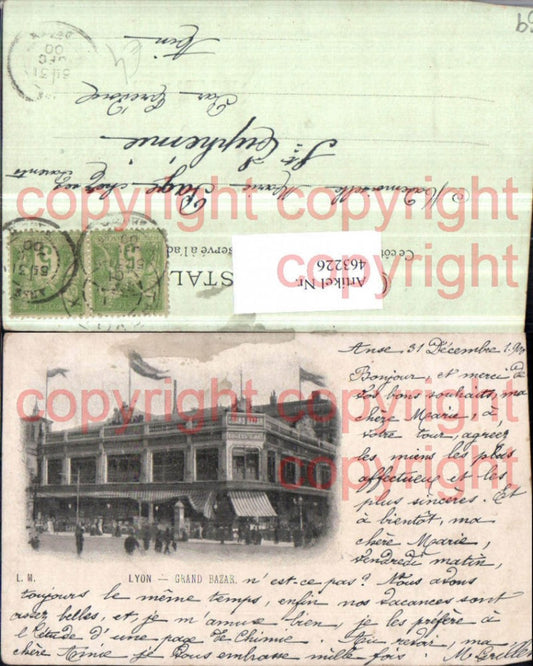 Ain
Par
St Euphémie
Mademoiselle Marie
chez ses parents
Ce côté
servé à l'ad
STAL
Artikel Nr.
463226
copyright copyright
copyright copyright
copyright copyright
copyright copyright
Anse 31 Décembre
Bonjour, et merci de
vos bons souhaits, ma
chère Marie, à
votre tour, agréez
les miens les plus
affectueux et les
plus sincères. Et
à bientôt, ma
chère Marie,
vendredi matin,
GRAND BAZAR
L. M. LYON — GRAND BAZAR.
n'est-ce pas? Nous avons
toujours le même temps, enfin nos vacances sont
assez belles, et, je m'amuse bien, je les préfère à
l'étude d'une page de Chimie. Au revoir, ma
chère Amie je vous embrasse mille fois